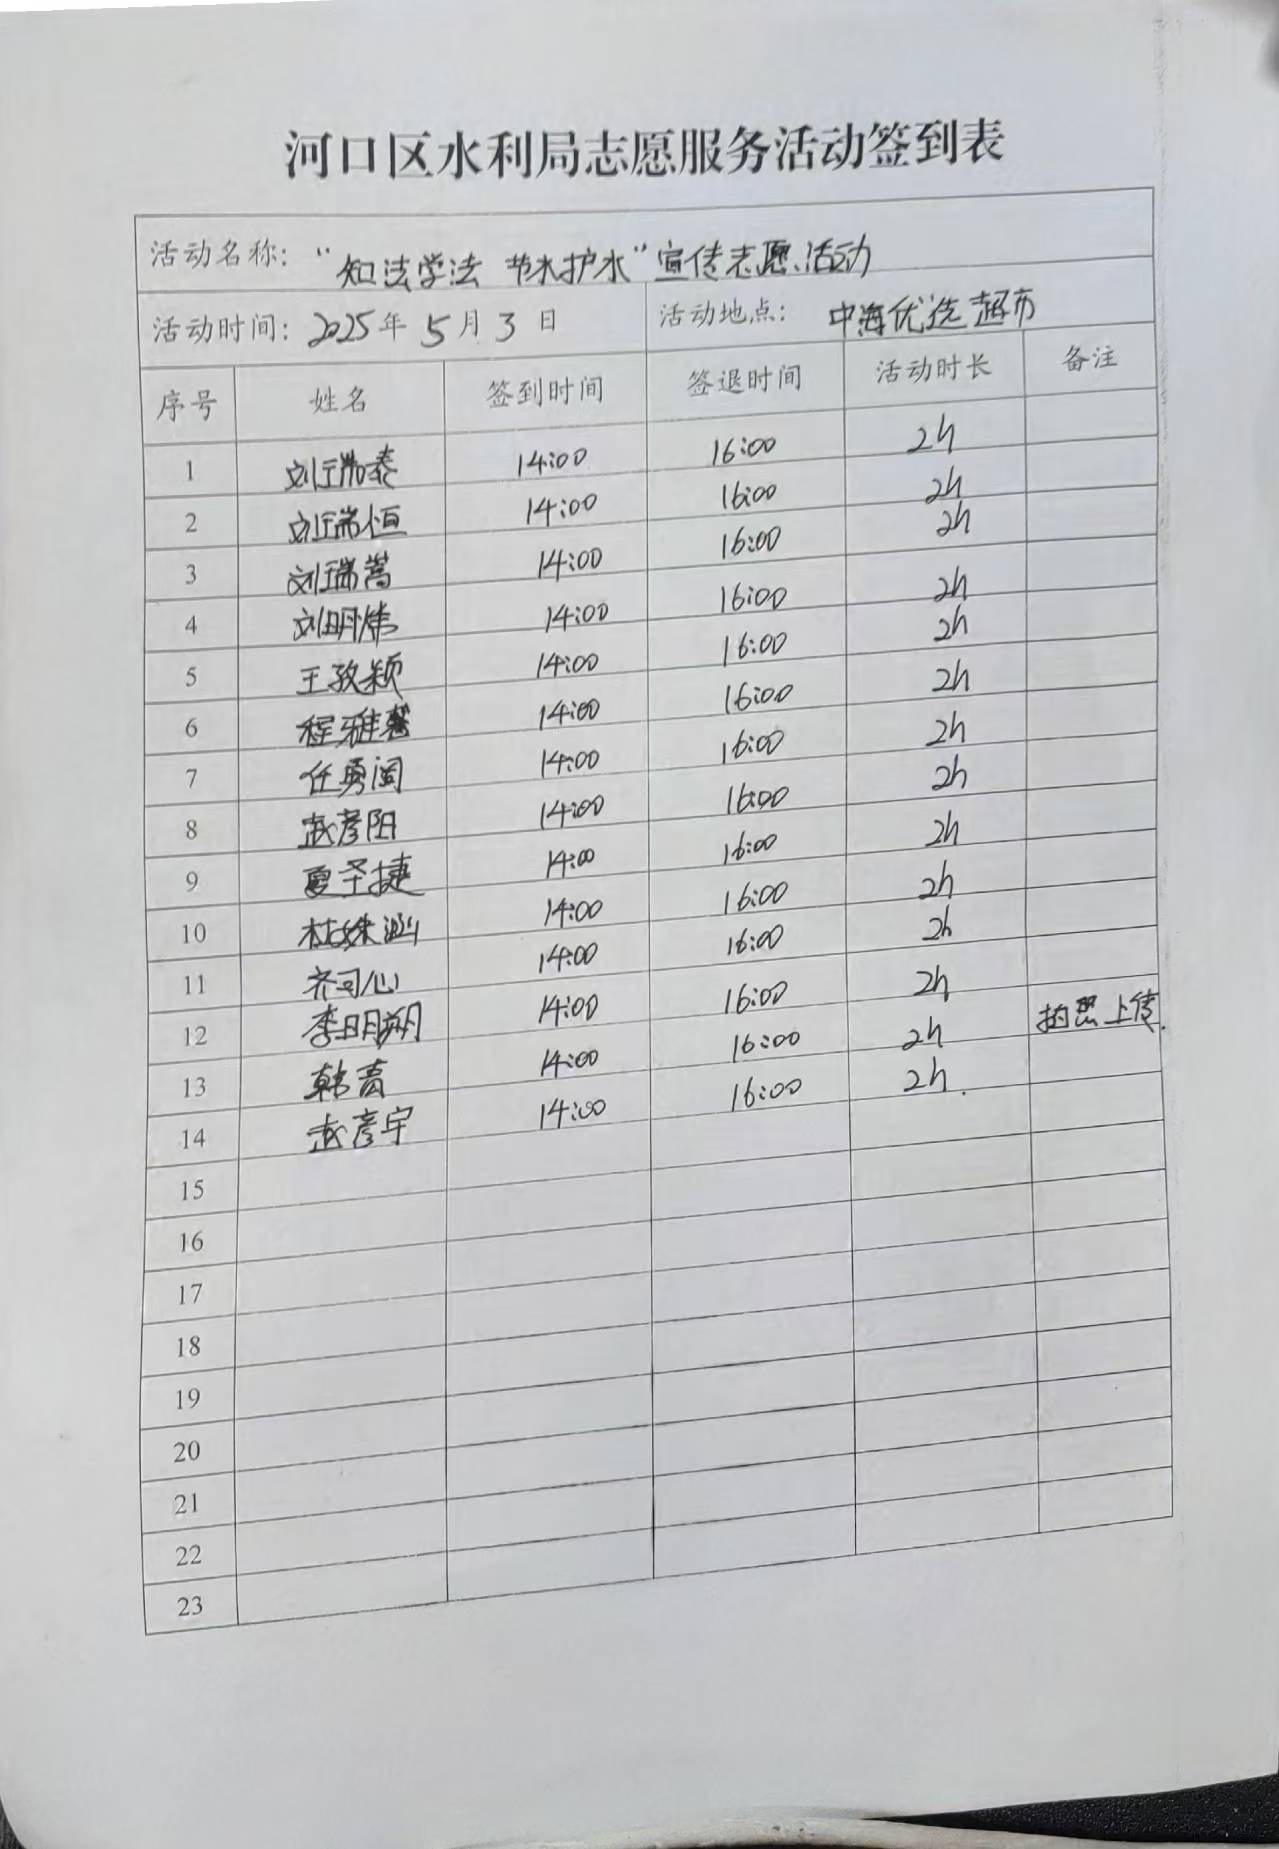 河口区水利局志愿服务活动签到表
活动名称：“知法学法 节水护水”宣传志愿活动
活动时间：2025年5月3日 活动地点：中海优选超市
序号 姓名 签到时间 签退时间 活动时长 备注
1 刘瑞泰 14:00 16:00 2h
2 刘瑞恒 14:00 16:00 2h
3 刘瑞嵩 14:00 16:00 2h
4 刘明炜 14:00 16:00 2h
5 王孜颖 14:00 16:00 2h
6 程雅馨 14:00 16:00 2h
7 任勇闯 14:00 16:00 2h
8 赵彦阳 14:00 16:00 2h
9 夏圣捷 14:00 16:00 2h
10 杜姝涵 14:00 16:00 2h
11 齐可心 14:00 16:00 2h
12 李明朔 14:00 16:00 2h
13 韩青 14:00 16:00 2h 拍照上传.
14 赵彦宇 14:00 16:00 2h.
15
16
17
18
19
20
21
22
23